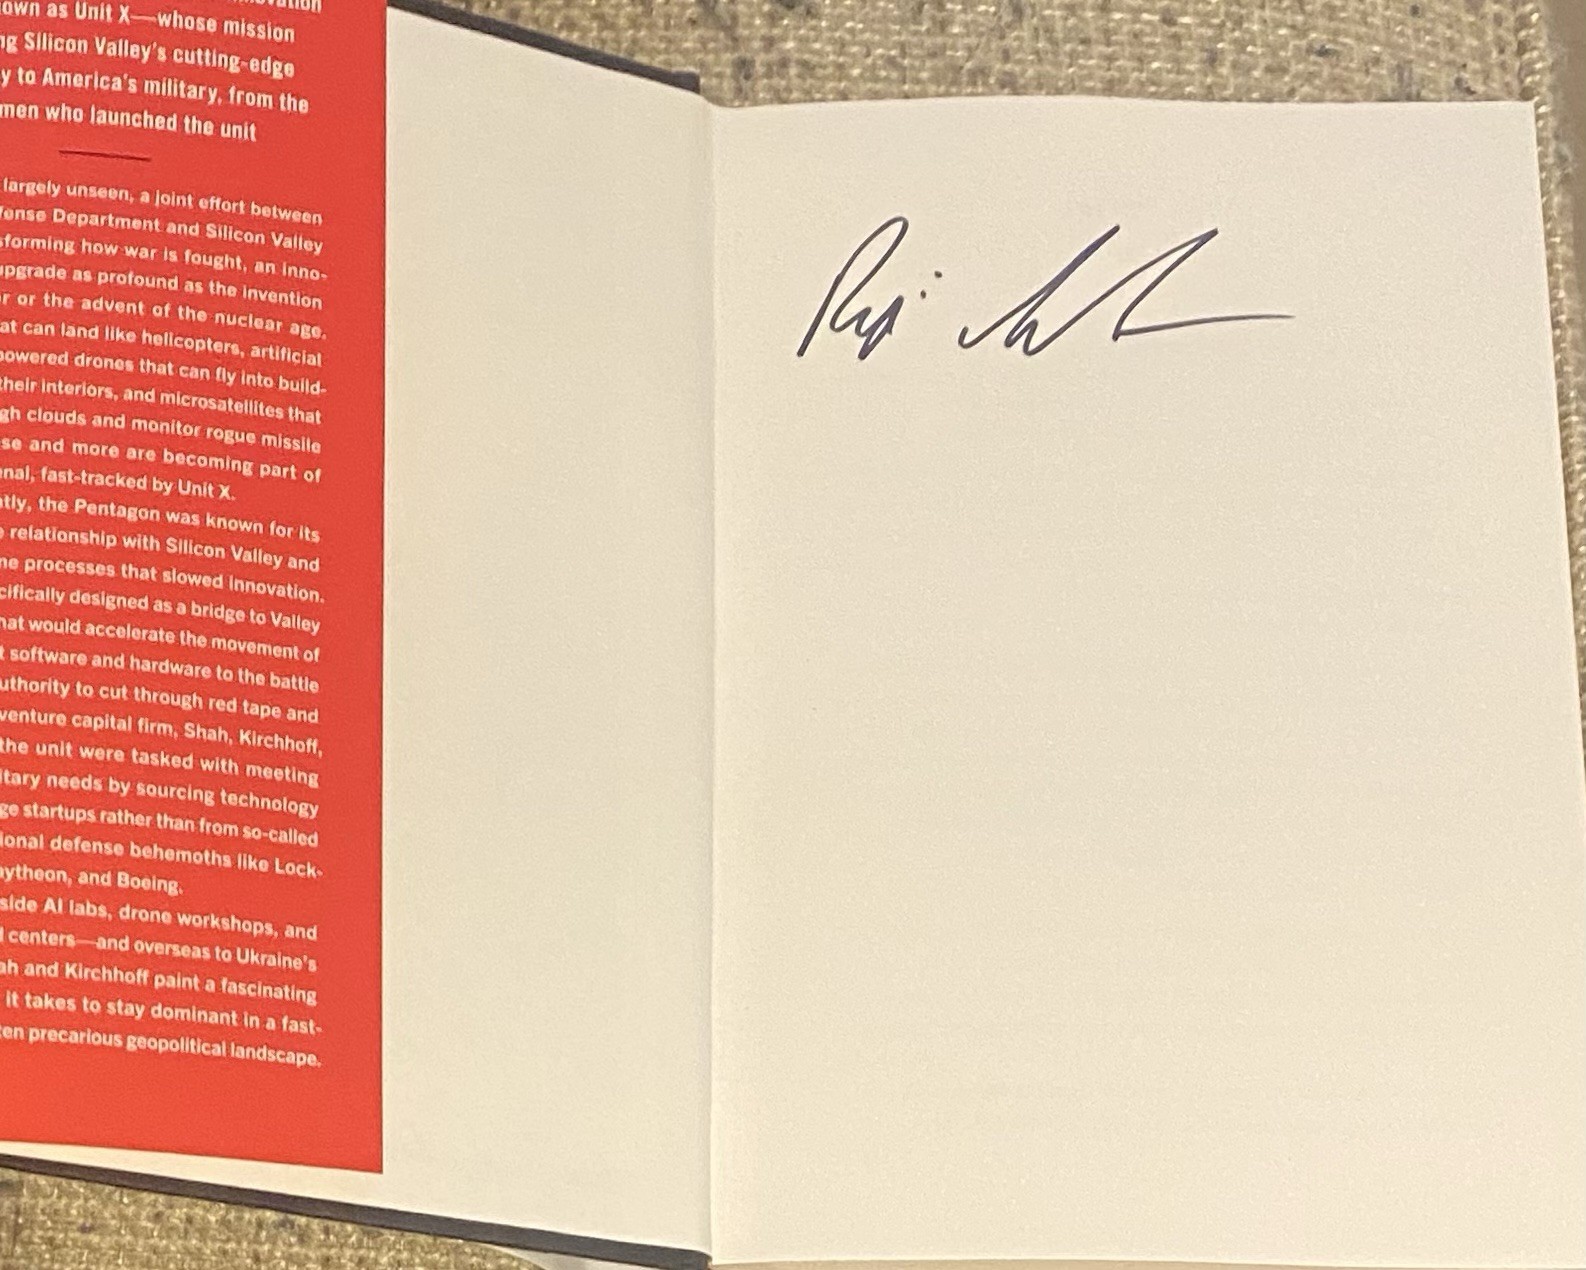 own as Unit X—whose mission
ng Silicon Valley's cutting-edge
y to America's military, from the
men who launched the unit
largely unseen, a joint effort between
fense Department and Silicon Valley
sforming how war is fought, an inno-
upgrade as profound as the invention
r or the advent of the nuclear age.
at can land like helicopters, artificial
powered drones that can fly into build-
their interiors, and microsatellites that
gh clouds and monitor rogue missile
se and more are becoming part of
enal, fast-tracked by Unit X.
ntly, the Pentagon was known for its
relationship with Silicon Valley and
ne processes that slowed innovation.
cifically designed as a bridge to Valley
hat would accelerate the movement of
t software and hardware to the battle
uthority to cut through red tape and
venture capital firm, Shah, Kirchhoff,
the unit were tasked with meeting
itary needs by sourcing technology
ge startups rather than from so-called
ional defense behemoths like Lock-
aytheon, and Boeing.
side AI labs, drone workshops, and
d centers—and overseas to Ukraine's
ah and Kirchhoff paint a fascinating
it takes to stay dominant in a fast-
ten precarious geopolitical landscape.